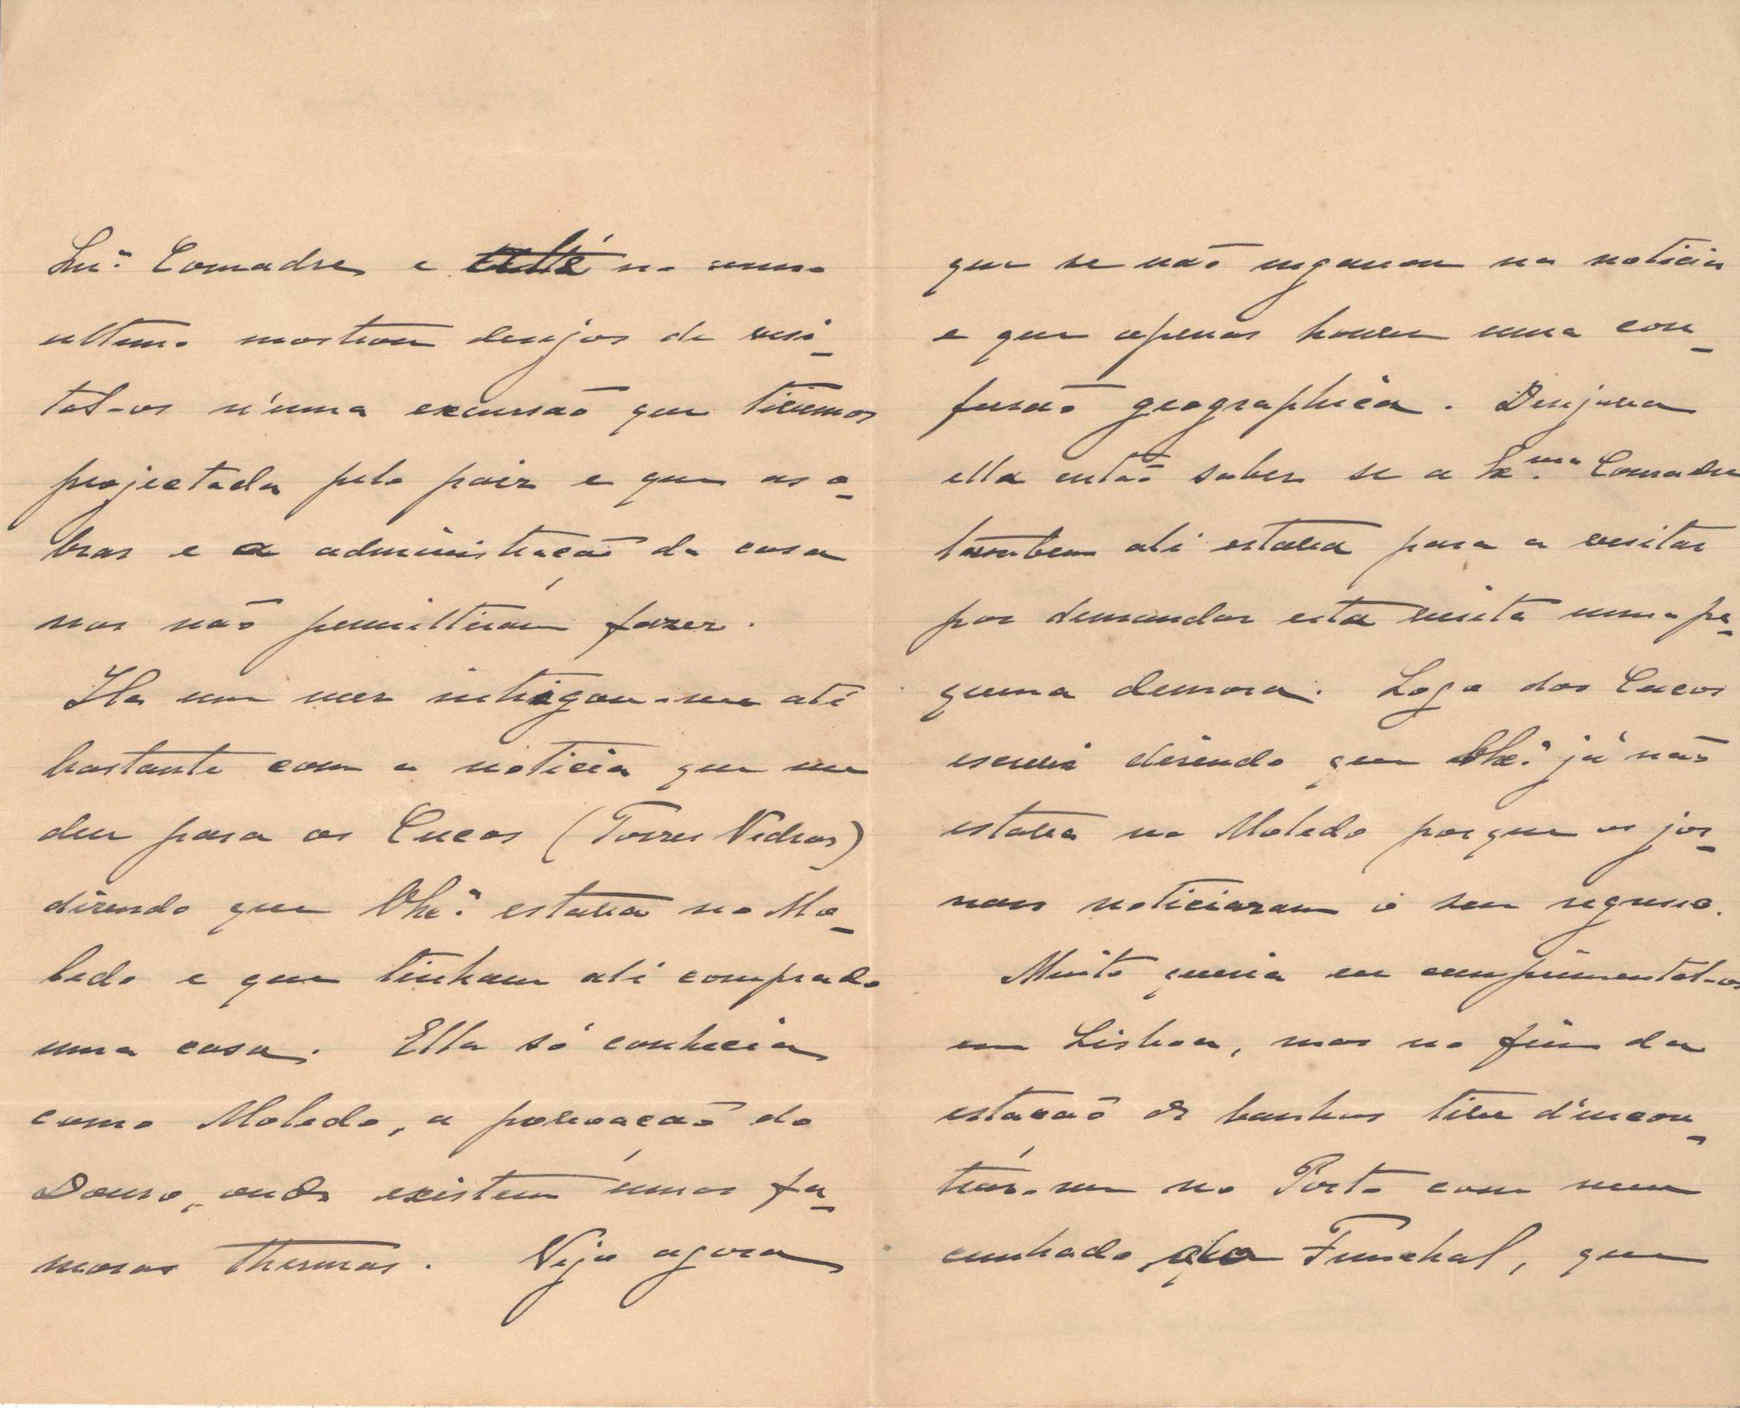 Snr.ª Comadre e até no anno
ultimo mostrou desejos de visi-
tal-os n'uma excursão que tivemos
projectada pelo paiz e que as o-
bras e a administração da casa
nos não permittiram fazer.
Ha um mez intrigou-me até
bastante com a noticia que me
deu para os Cucos (Torres Vedras)
dizendo que V. Ex.ª estava no Mo-
ledo e que tinham ali comprado
uma casa. Ella só conhecia
como Moledo, a povoação do
Douro, onde existem umas fa-
mosas thermas. Vejo agora
que se não enganou na noticia
e que apenas houve uma con-
fusão geographica. Desejava
ella então saber se a Ex.ma Comadre
tambem ali estava para a visitar
por demandar esta visita uma pe-
quena demora. Logo dos Cucos
escrevi dizendo que V. Ex.ª já não
estava no Moledo porque os jor-
naes noticiaram o seu regresso.
Muito queria eu cumprimental-os
em Lisboa, mas no fim da
estação de banhos tive d'encon-
trár-me no Porto com meu
cunhado do Funchal, que